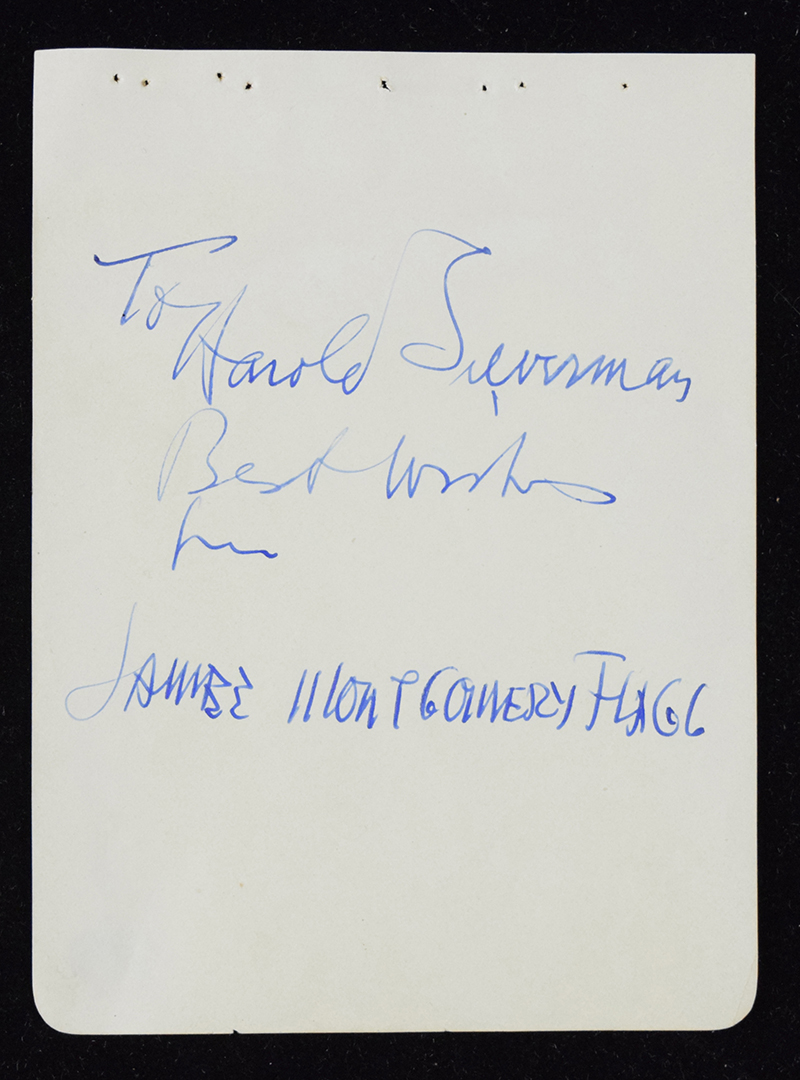 To
Harold Sieverman
Best Wishes
from
JAMES MONTGOMERY FLAGG